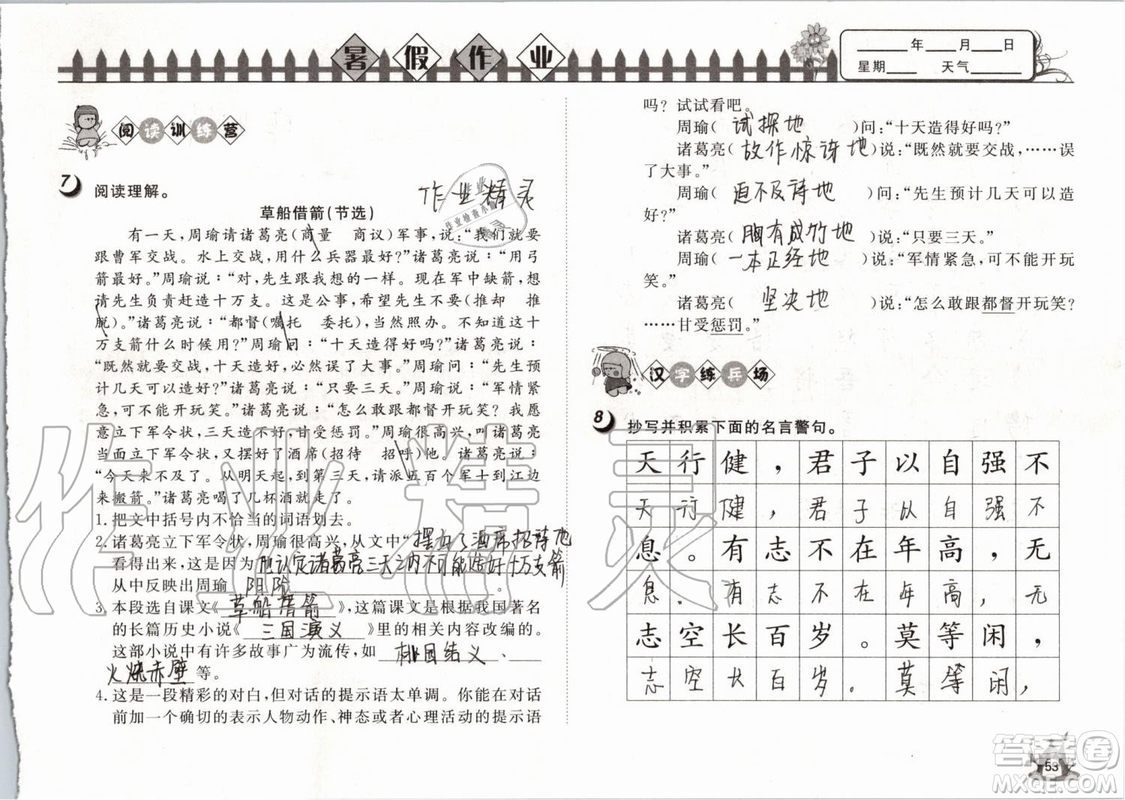 暑假作业
____年____月____日
星期____ 天气____
阅读训练营
7 阅读理解。
作业精灵
草船借箭(节选)
有一天,周瑜请诸葛亮(商量 商议)军事,说:“我们就要
跟曹军交战。水上交战,用什么兵器最好?”诸葛亮说:“用弓
箭最好。”周瑜说:“对,先生跟我想的一样。现在军中缺箭,想
请先生负责赶造十万支。这是公事,希望先生不要(推却 推
脱)。”诸葛亮说:“都督(嘱托 委托),当然照办。不知道这十
万支箭什么时候用?”周瑜问:“十天造得好吗?”诸葛亮说:
“既然就要交战,十天造好,必然误了大事。”周瑜问:“先生预
计几天可以造好?”诸葛亮说:“只要三天。”周瑜说:“军情紧
急,可不能开玩笑。”诸葛亮说:“怎么敢跟都督开玩笑?我愿
意立下军令状,三天造不好,甘受惩罚。”周瑜很高兴,叫诸葛亮
当面立下军令状,又摆好了酒席(招待 招呼)他。诸葛亮说:
“今天来不及了。从明天起,到第三天,请派五百个军士到江边
来搬箭。”诸葛亮喝了几杯酒就走了。
1. 把文中括号内不恰当的词语划去。
2. 诸葛亮立下军令状,周瑜很高兴,从文中“摆好了酒席招待他
看得出来,这是因为他认定诸葛亮三天之内不可能造好十万支箭
从中反映出周瑜 阴险 。
3. 本段选自课文《草船借箭》,这篇课文是根据我国著名
的长篇历史小说《三国演义》里的相关内容改编的。
这部小说中有许多故事广为流传,如 桃园结义 、
火烧赤壁 等。
4. 这是一段精彩的对白,但对话的提示语太单调。你能在对话
前加一个确切的表示人物动作、神态或者心理活动的提示语
吗?试试看吧。
周瑜( 试探地 )问:“十天造得好吗?”
诸葛亮( 故作惊讶地 )说:“既然就要交战,……误
了大事。”
周瑜( 迫不及待地 )问:“先生预计几天可以造
好?”
诸葛亮( 胸有成竹地 )说:“只要三天。”
周瑜( 一本正经地 )说:“军情紧急,可不能开玩
笑。”
诸葛亮( 坚决地 )说:“怎么敢跟都督开玩笑?
……甘受惩罚。”
汉字练兵场
8 抄写并积累下面的名言警句。
天行健,君子以自强不
天行健,君子以自强不
息。有志不在年高,无
息。有志不在年高,无
志空长百岁。莫等闲,
志空长百岁。莫等闲,
53
作业精灵
答案卷
MXQE.COM